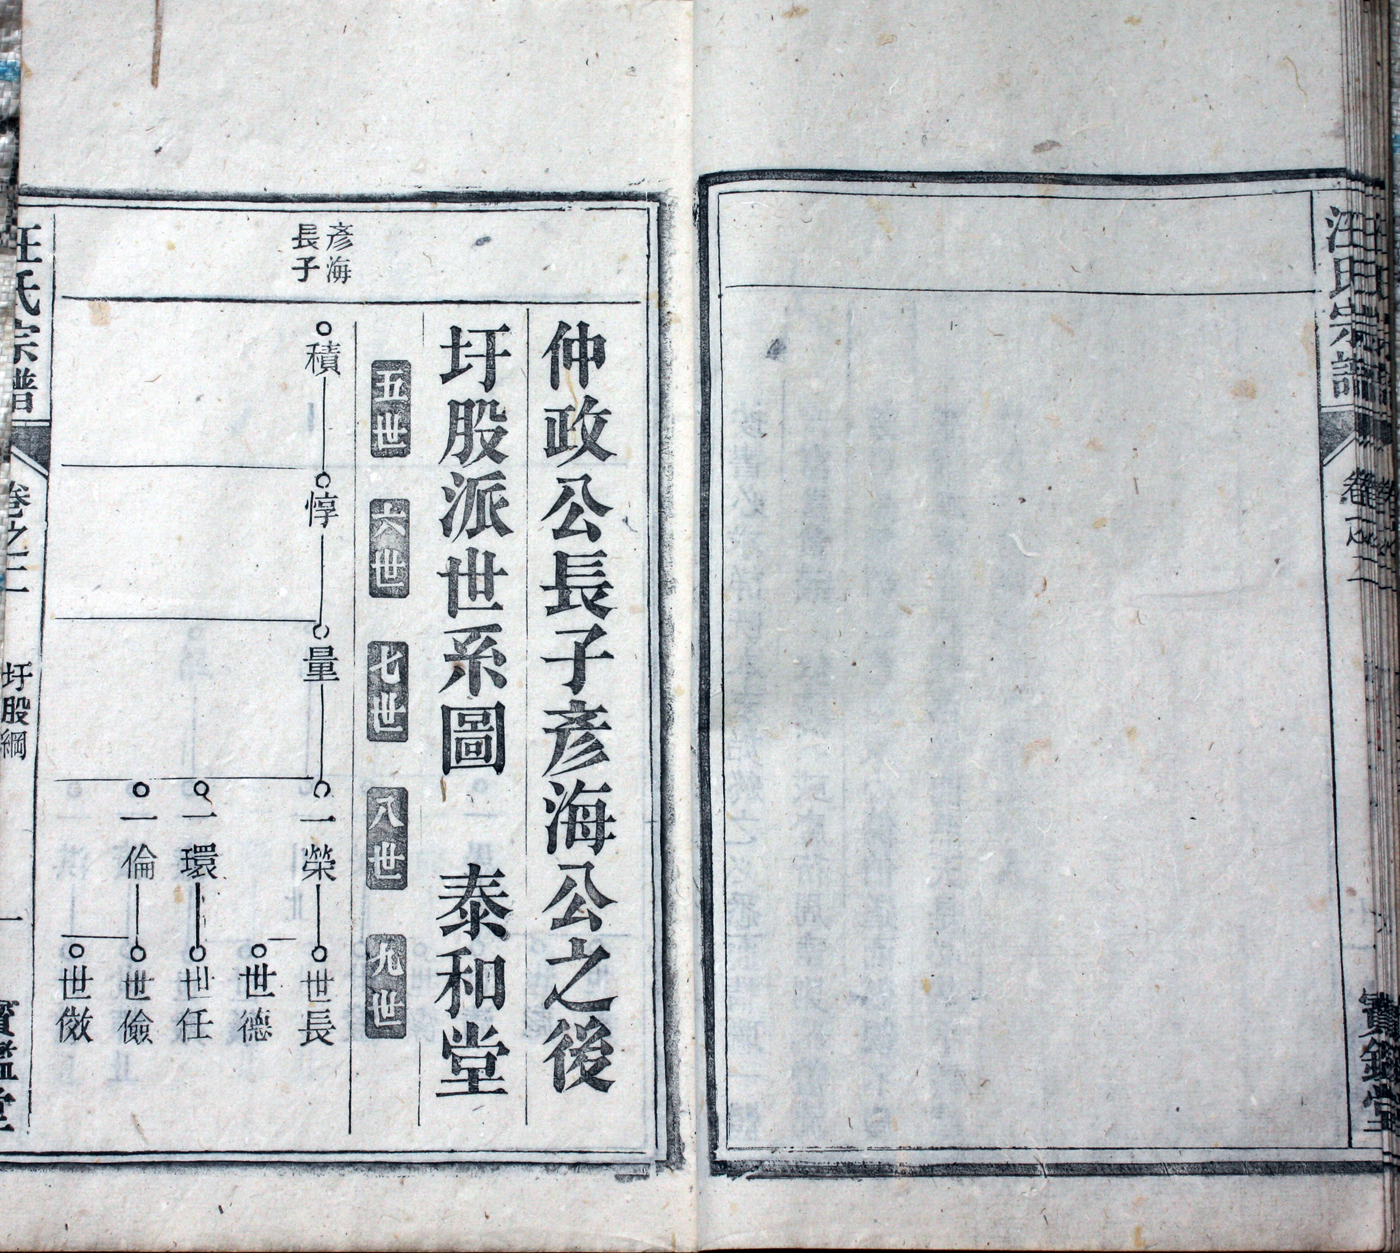 汪氏宗譜
卷之二
寶鑑堂
仲政公長子彥海公之後
圩股派世系圖 泰和堂
五世 六世 七世 八世 九世
彥海
長子
積
惇
量
一榮
世長
世德
一環
世任
一倫
世儉
世傚
汪氏宗譜
卷之二
圩股綱
一
寶鑑堂